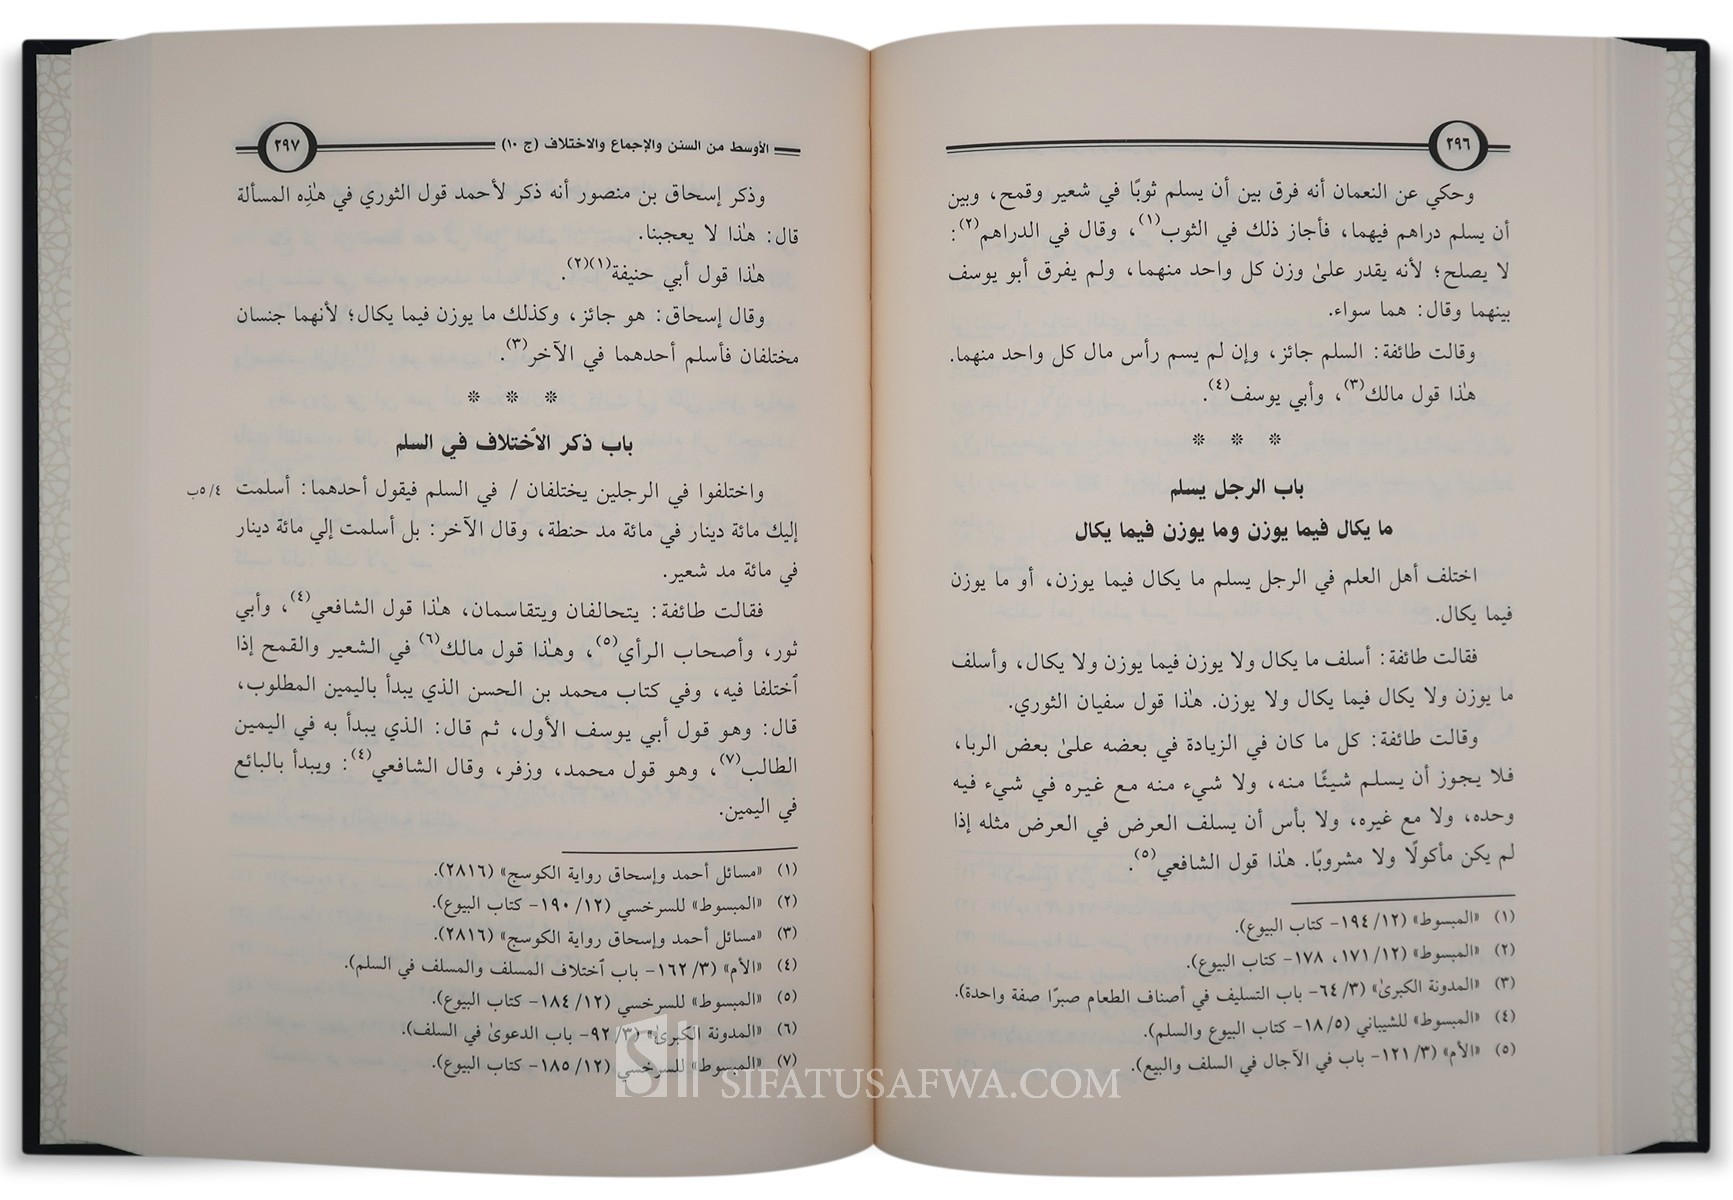 ٢٩٦
وحكي عن النعمان أنه فرق بين أن يسلم ثوبًا في شعير وقمح، وبين
أن يسلم دراهم فيهما، فأجاز ذلك في الثوب(١)، وقال في الدراهم(٢):
لا يصلح؛ لأنه يقدر علىٰ وزن كل واحد منهما، ولم يفرق أبو يوسف
بينهما وقال: هما سواء.
وقالت طائفة: السلم جائز، وإن لم يسم رأس مال كل واحد منهما.
هٰذا قول مالك(٣)، وأبي يوسف(٤).
* * *
باب الرجل يسلم
ما يكال فيما يوزن وما يوزن فيما يكال
اختلف أهل العلم في الرجل يسلم ما يكال فيما يوزن، أو ما يوزن
فيما يكال.
فقالت طائفة: أسلف ما يكال ولا يوزن فيما يوزن ولا يكال، وأسلف
ما يوزن ولا يكال فيما يكال ولا يوزن. هٰذا قول سفيان الثوري.
وقالت طائفة: كل ما كان في الزيادة في بعضه علىٰ بعض الربا،
فلا يجوز أن يسلم شيئًا منه، ولا شيء منه مع غيره في شيء فيه
وحده، ولا مع غيره، ولا بأس أن يسلف العرض في العرض مثله إذا
لم يكن مأكولًا ولا مشروبًا. هٰذا قول الشافعي(٥).
(١) «المبسوط» (١٢/ ١٩٤- كتاب البيوع).
(٢) «المبسوط» (١٢/ ١٧١، ١٧٨- كتاب البيوع).
(٣) «المدونة الكبرىٰ» (٣/ ٦٤- باب التسليف في أصناف الطعام صبرًا صفة واحدة).
(٤) «المبسوط» للشيباني (٥/ ١٨- كتاب البيوع والسلم).
(٥) «الأم» (٣/ ١٢١- باب في الآجال في السلف والبيع).
الأوسط من السنن والإجماع والاختلاف (ج ١٠) ٢٩٧
وذكر إسحاق بن منصور أنه ذكر لأحمد قول الثوري في هٰذِه المسألة
قال: هٰذا لا يعجبنا.
هٰذا قول أبي حنيفة(١)(٢).
وقال إسحاق: هو جائز، وكذلك ما يوزن فيما يكال؛ لأنهما جنسان
مختلفان فأسلم أحدهما في الآخر(٣).
* * *
باب ذكر الاٌختلاف في السلم
واختلفوا في الرجلين يختلفان / في السلم فيقول أحدهما: أسلمت ٤/ ٥ب
إليك مائة دينار في مائة مد حنطة، وقال الآخر: بل أسلمت إلي مائة دينار
في مائة مد شعير.
فقالت طائفة: يتحالفان ويتقاسمان، هٰذا قول الشافعي(٤)، وأبي
ثور، وأصحاب الرأي(٥)، وهٰذا قول مالك(٦) في الشعير والقمح إذا
ٱختلفا فيه، وفي كتاب محمد بن الحسن الذي يبدأ باليمين المطلوب،
قال: وهو قول أبي يوسف الأول، ثم قال: الذي يبدأ به في اليمين
الطالب(٧)، وهو قول محمد، وزفر، وقال الشافعي(٤): ويبدأ بالبائع
في اليمين.
(١) «مسائل أحمد وإسحاق رواية الكوسج» (٢٨١٦).
(٢) «المبسوط» للسرخسي (١٢/ ١٩٠- كتاب البيوع).
(٣) «مسائل أحمد وإسحاق رواية الكوسج» (٢٨١٦).
(٤) «الأم» (٣/ ١٦٢- باب ٱختلاف المسلف والمسلف في السلم).
(٥) «المبسوط» للسرخسي (١٢/ ١٨٤- كتاب البيوع).
(٦) «المدونة الكبرىٰ» (٣/ ٩٢- باب الدعوىٰ في السلف).
(٧) «المبسوط» للسرخسي (١٢/ ١٨٥- كتاب البيوع).
SIFATUSAFWA.COM